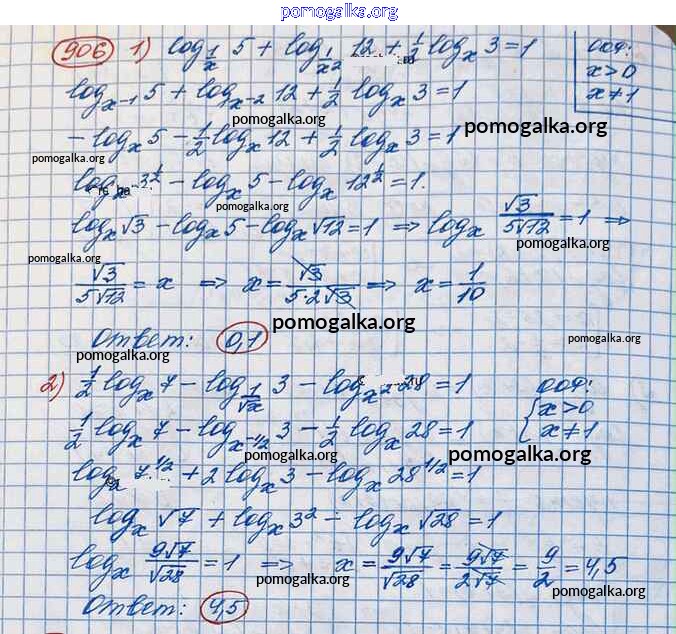 pomogalka.org
906 1) log_{1/x} 5 + log_{1/x^2} 12 + 1/2 log_x 3 = 1
ООФ:
x>0
x≠1
log_{x^{-1}} 5 + log_{x^{-2}} 12 + 1/2 log_x 3 = 1
pomogalka.org
- log_x 5 - 1/2 log_x 12 + 1/2 log_x 3 = 1
pomogalka.org
pomogalka.org
log_x 3^{1/2} - log_x 5 - log_x 12^{1/2} = 1.
pomogalka.org
log_x √3 - log_x 5 - log_x √12 = 1 ⇒ log_x √3/5√12 = 1 ⇒
pomogalka.org
pomogalka.org
√3/5√12 = x ⇒ x = √3/5·2√3 ⇒ x = 1/10
pomogalka.org
Ответ: 0,1
pomogalka.org
pomogalka.org
2) 1/2 log_x 7 - log_{1/√x} 3 - log_{x^2} 28 = 1
ООФ:
x>0
x≠1
1/2 log_x 7 - log_{x^{-1/2}} 3 - 1/2 log_x 28 = 1
pomogalka.org
pomogalka.org
log_x 7^{1/2} + 2 log_x 3 - log_x 28^{1/2} = 1
log_x √7 + log_x 3^2 - log_x √28 = 1
log_x 9√7/√28 = 1 ⇒ x = 9√7/√28 = 9√7/2√7 = 9/2 = 4,5
pomogalka.org
pomogalka.org
Ответ: 4,5